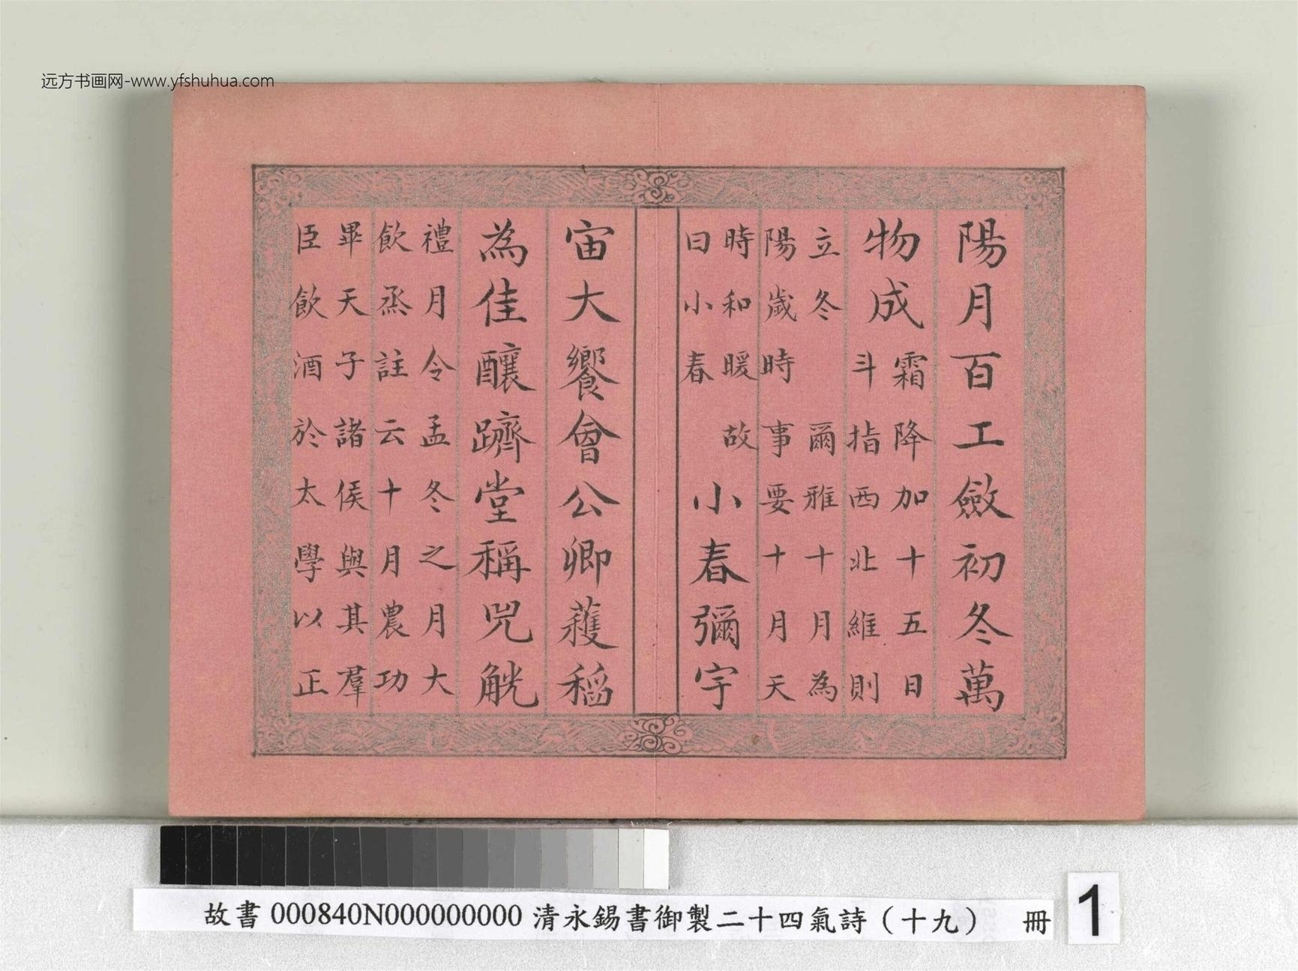 远方书画网-www.yfshuhua.com
陽月百工斂初冬萬
物成
霜降加十五日
斗指西北維則
立冬 爾雅十月為
陽歲時事要十月天
時和暖故
日小春
小春彌宇
宙大饗會公卿穫稻
為佳釀躋堂稱兕觥
禮月令孟冬之月大
飲烝註云十月農功
畢天子諸侯與其羣
臣飲酒於太學以正
故書000840N000000000 清永錫書御製二十四氣詩（十九） 冊 1